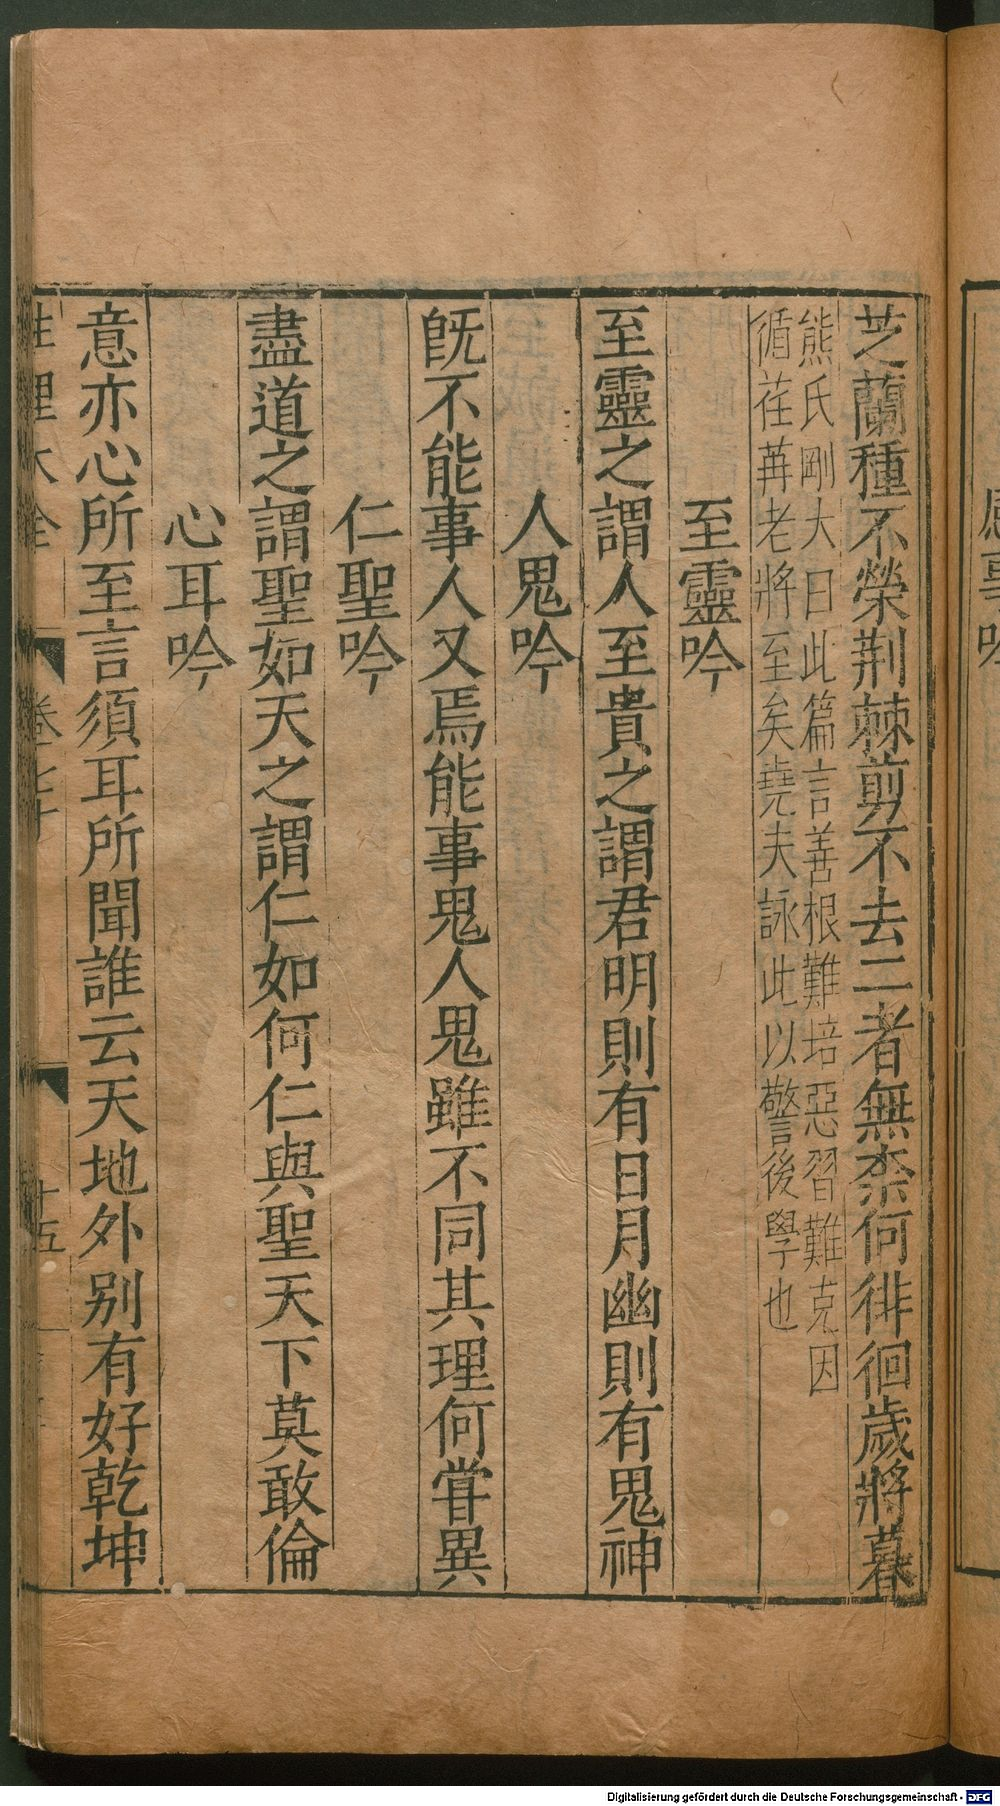 芝蘭種不榮荆棘剪不去二者無柰何徘徊歲將暮
熊氏剛大曰此篇言善根難培惡習難克因
循荏苒老將至矣堯夫詠此以警後學也
至靈吟
至靈之謂人至貴之謂君明則有日月幽則有鬼神
人鬼吟
旣不能事人又焉能事鬼人鬼雖不同其理何甞異
仁聖吟
盡道之謂聖如天之謂仁如何仁與聖天下莫敢倫
心耳吟
意亦心所至言須耳所聞誰云天地外别有好乾坤
性理大全 卷七十 十五
Digitalisierung gefördert durch die Deutsche Forschungsgemeinschaft - DFG